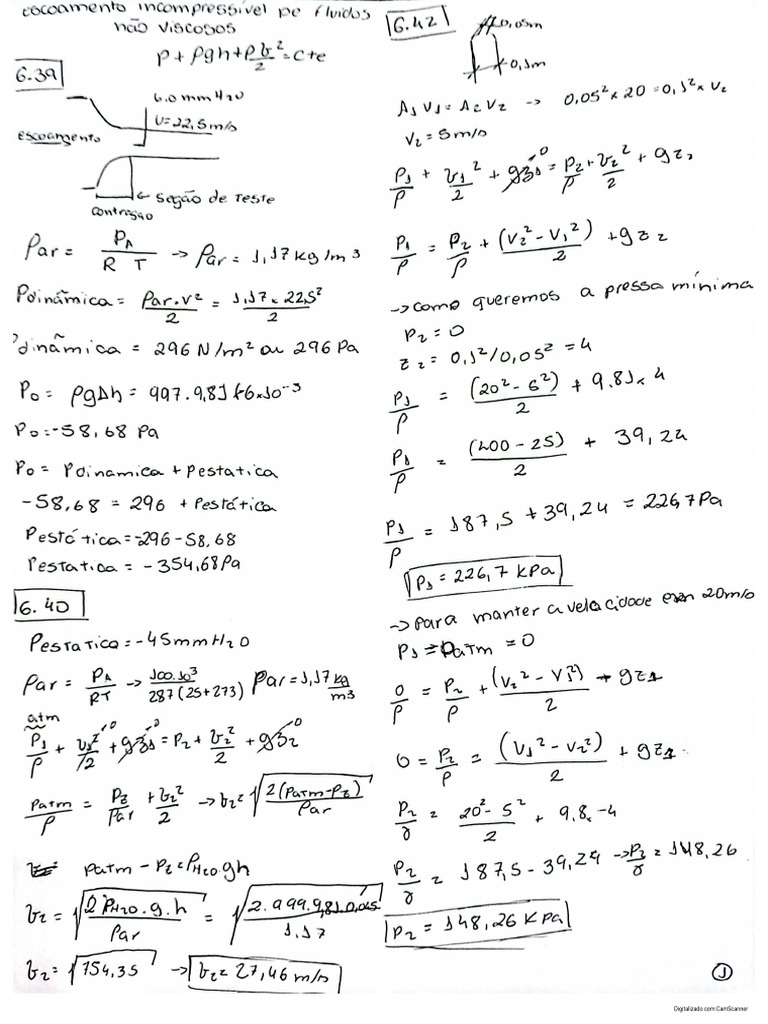 escoamento incompressível de fluidos
não viscosos
p + ρgh + ρv²/2 = cte
6.39
6.0 mm H2O
V = 22,5 m/s
escoamento
seção de teste
contração
ρar = PA / R T → ρar = 1,17 kg/m3
Pdinâmica = ρar.v²/2 = 1,17 x 22,5²/2
Pdinâmica = 296 N/m² ou 296 Pa
P0 = ρgΔh = 997.9,81.-6x10⁻³
P0 = -58,68 Pa
P0 = Pdinamica + Pestatica
-58,68 = 296 + Pestática
Pestática = -296 - 58,68
Pestatica = -354,68 Pa
6.40
Pestatica = -45mm H2O
ρar = PA/RT → 100.10³/287(25+273) ρar = 1,17 kg/m3
atm
P1/ρ + v1²/2 + gz1 = P2 + v2²/2 + gz2
Patm/ρ = P2/ρar + v2²/2 → v2 = √2(Patm-P2)/ρar
Patm - P2 = ρH2O.gh
v2 = √2 ρH2O.g.h/ρar = √2.999.9,81.0,045/1,17
v2 = √754,35 → v2 = 27,46 m/s
6.42
0,05m
0,1m
A1 V1 = A2 V2 → 0,05² x 20 = 0,1² x V2
V2 = 5m/s
P1/ρ + v1²/2 + gz1 0 = P2/ρ + v2²/2 + gz2
P1/ρ = P2/ρ + (V2² - V1²)/2 + gz2
→ como queremos a pressa mínima
P2 = 0
z2 = 0,1²/0,05² = 4
P1/ρ = (20² - 5²)/2 + 9.81 x 4
P1/ρ = (400 - 25)/2 + 39,24
P1/ρ = 187,5 + 39,24 = 226,7 Pa
P1 = 226,7 KPa
→ para manter a velocidade em 20m/s
P1 = Patm = 0
0/ρ = P2/ρ + (V2² - V1²)/2 + gz1
0 = P2/ρ = (V1² - V2²)/2 + gz1
P2/γ = 20² - 5²/2 + 9,8.-4
P2/γ = 187,5 - 39,24 → P2/γ = 148,26
P2 = 148,26 KPa
1
Digitalizado com CamScanner